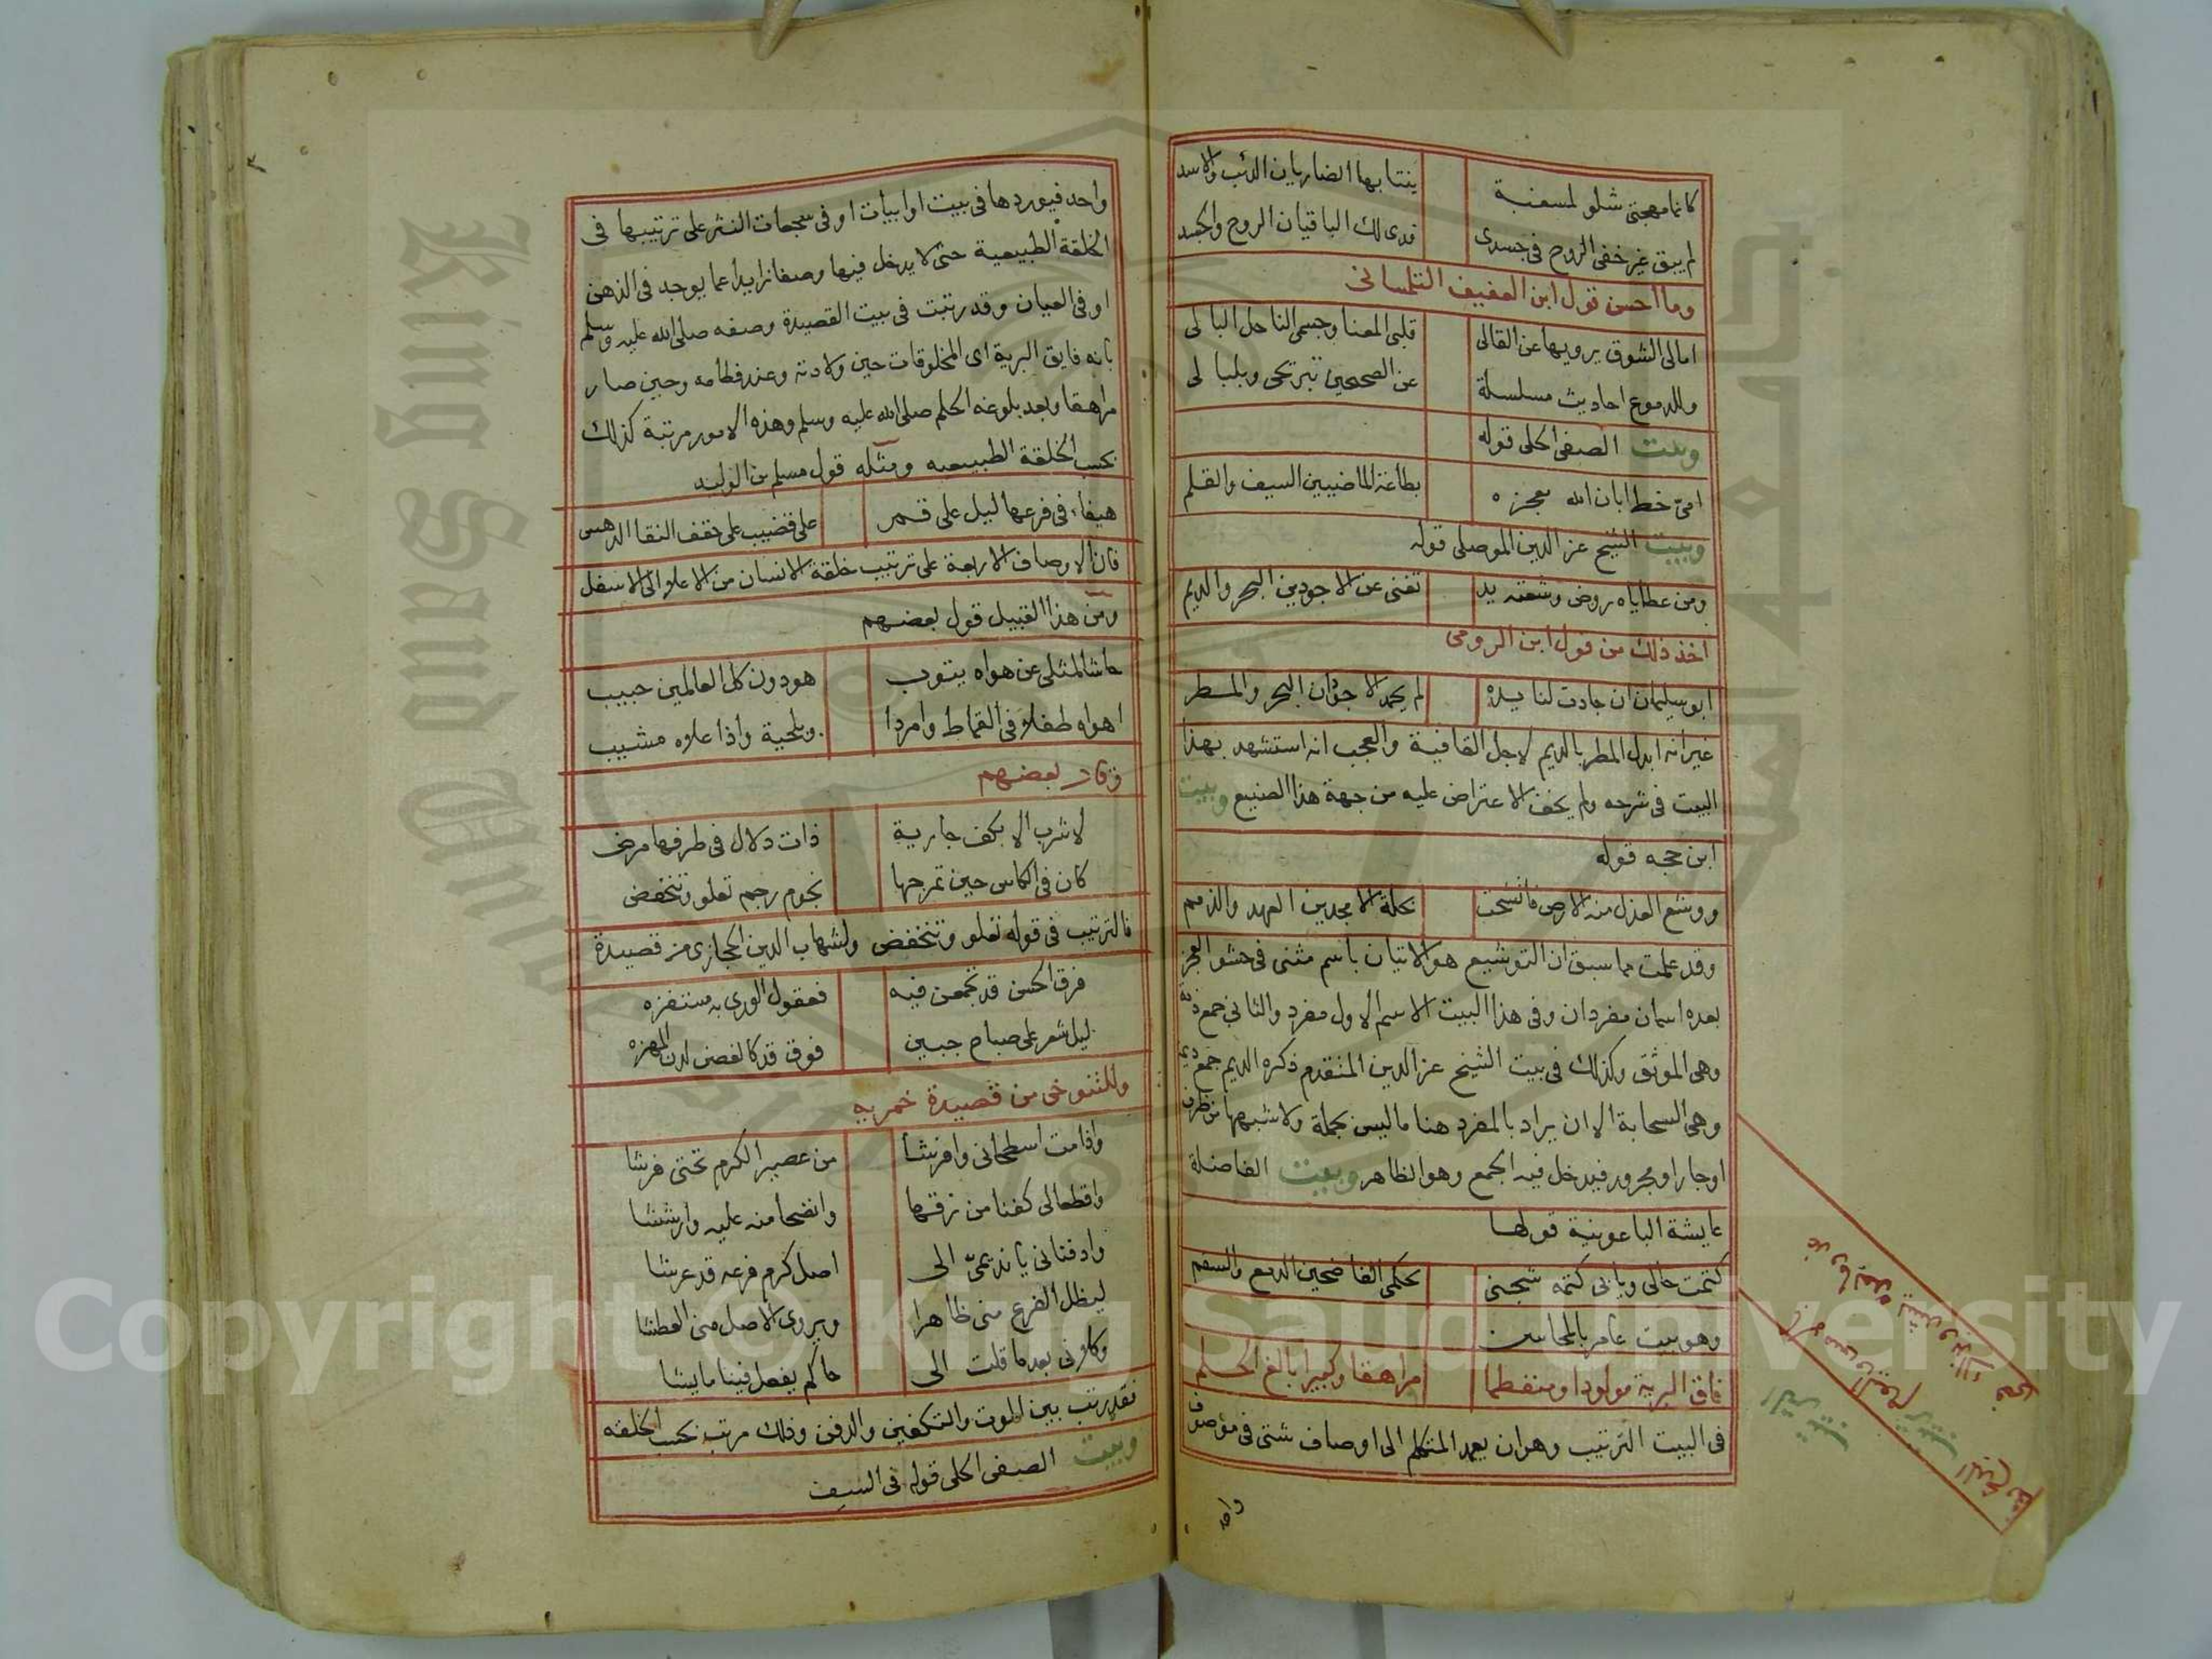 كانما مهجتي شلو لمسغبة ينتابها الضاريان الذئب والاسد
لم يبق غير خفى الروح في جسدى فدى لك الباقيان الروح والجسد
وما احسن قول ابن العفيف التلمسانى
امالى الشوق يرويها عن القالى قلبى المعنا وجسمى الناحل البالى
وللدموع احاديث مسلسلة عن الصحيحين تبرتحى وبلبالى
وبيت الصفى الحلى قوله
امىّ خط ابان الله معجزه بطاعة الماضيين السيف والقلم
وبيت الشيخ عز الدين الموصلى قوله
ومن عطاياه روض وشعته يد تغنى عن الاجودين البحر والديم
اخذ ذلك من قول ابن الرومى
ابو سليمان ان جادت لنا يده لم يحمد الاجودان البحر والمطر
غير انه ابدل المطر بالديم لاجل القافية والعجب انه استشهد بهذا
البيت فى شرحه ولم يخف الاعتراض عليه من جهة هذا الصنيع وبيت
ابن حجه قوله
ووشع العدل منه الارض فاتشحت بحلة الامجدين العهد والذمم
وقد علمت مما سبق ان التوشيع هو الاتيان باسم مثنى فى حشو العجز
بعده اسمان مفردان وفى هذا البيت الاسم الاول مفرد والثانى جمع ذمة
وهى الموثق وكذلك فى بيت الشيخ عز الدين المتقدم ذكره الديم جمع ديمة
وهى السحابة الا ان يراد بالمفرد هنا ما ليس بجملة ولا شبهها من ظرف
او جار او مجرور فيدخل فيه الجمع وهو الظاهر وبيت الفاضلة
عايشة الباعونية قولها
كتمت حالى ويابى كتمه شجنى بحكمى الفاضحين الدمع والسقم
وهو بيت عامر بالمحاسن
فاق البرية مولودا ومنفطما مراهقا وكبيرا بالغ الحلم
فى البيت الترتيب وهو ان يعمد المتكلم الى اوصاف شتى فى موصوف
واحد
واحد فيوردها فى بيت او ابيات او فى سجعات النثر على ترتيبها فى
الخلقة الطبيعية حتى لا يدخل فيها وصفا زايدا عما يوجد فى الذهن
او فى العيان وقد رتبت فى بيت القصيدة وصفه صلى الله عليه وسلم
بانه فايق البرية اى المخلوقات حين ولادته وعند فطامه وحين صار
مراهقا وبعد بلوغه الحلم صلى الله عليه وسلم وهذه الامور مرتبة كذلك
بحسب الخلقة الطبيعيه ومثله قول مسلم بن الوليد
هيفاء فى فرعها ليل على قمر على قضيب على حقف النقا الدهس
فان الاوصاف الاربعة على ترتيب خلقة الانسان من الاعلا الى الاسفل
ومن هذا القبيل قول بعضهم
حاشا لمثلى عن هواه يتوب هو دون كل العالمين حبيب
اهواه طفلا فى القماط وامردا وبلحية واذا علاه مشيب
وقال بعضهم
لا شرب الا بكف جارية ذات دلال فى طرفها مرض
كان فى الكاس حين تمزجها نجوم رجم تعلو وتنخفض
فالترتيب فى قوله تعلو وتنخفض ولشهاب الدين الحجازى من قصيدة
فرق الحسن قد تجمعن فيه فعقول الورى به مستفزه
ليل شعر على صباح جبين فوق قد كالغصن لدن المهزه
وللتنوخى من قصيدة خمريه
واذا مت اسطحانى وافرشا من عصير الكرم تحتى فرشا
واقطعا لى كفنا من زقها وانضحا منه عليه وارششا
وادفنانى يا نديمىّ الى اصل كرم فرعه قد عرشا
ليظل الفرع منى ظاهرا ويروى الاصل منى العطشا
وكلونى بعد ما قلت الى حاكم يفعل فينا ما يشا
فقد رتب بين الموت والتكفين والدفن وذلك مرتب بحسب الخلقه
وبيت الصفى الحلى قوله فى السيف
Copyright © King Saud University